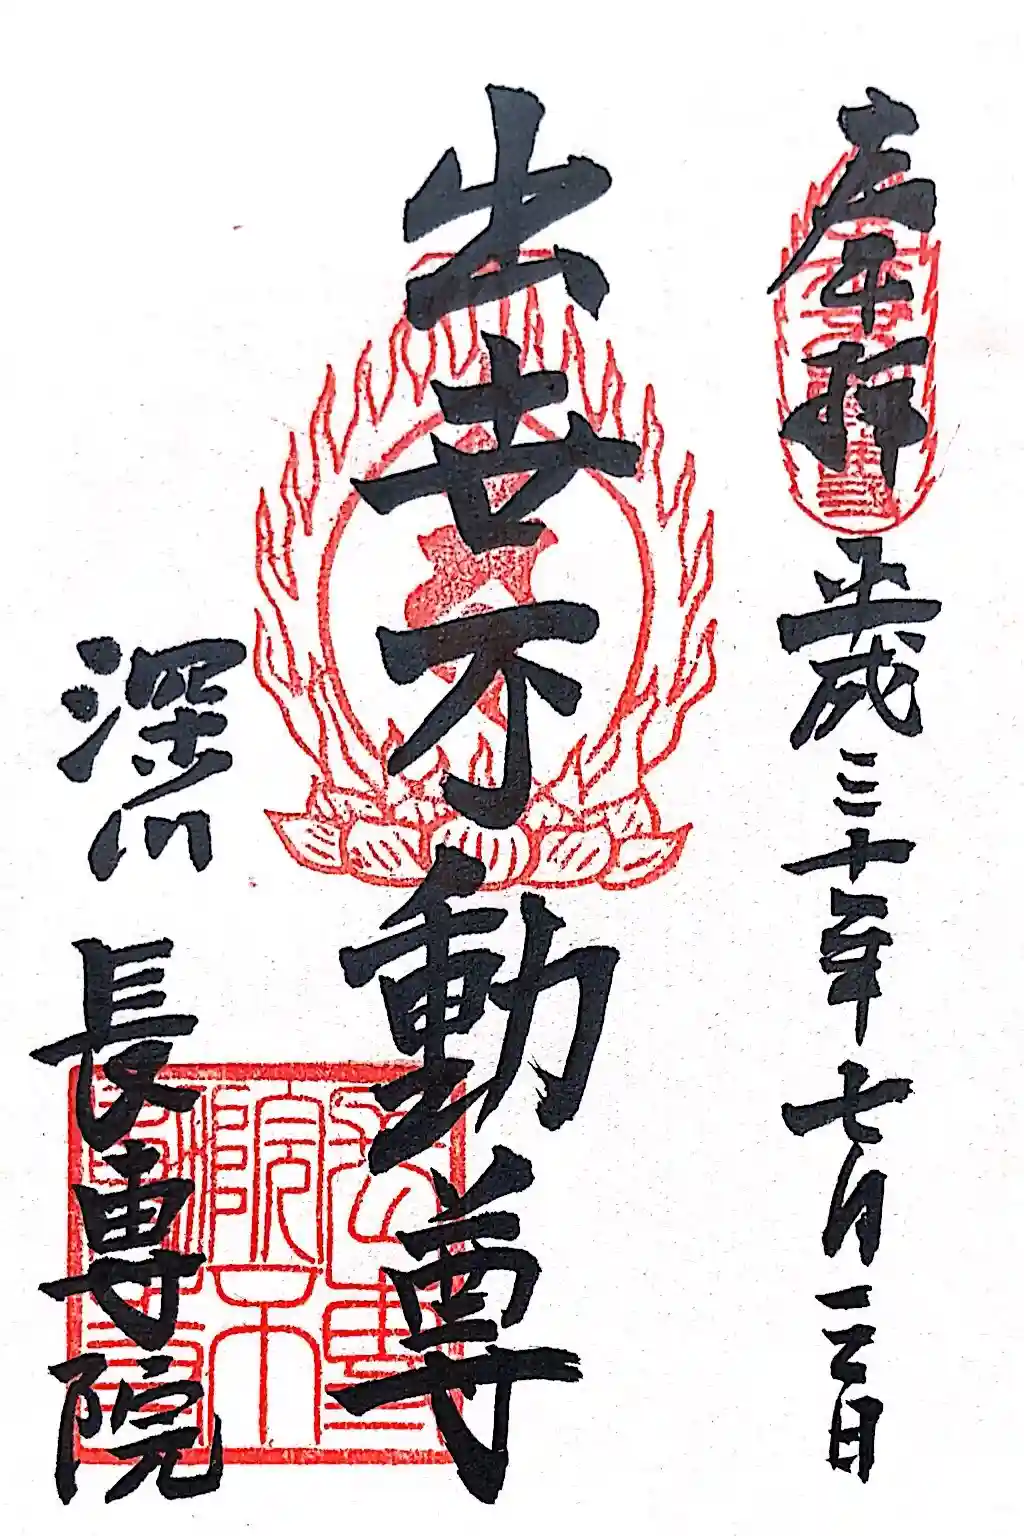 奉拝 平成三十年七月一三日
出世不動尊
深川 長専院